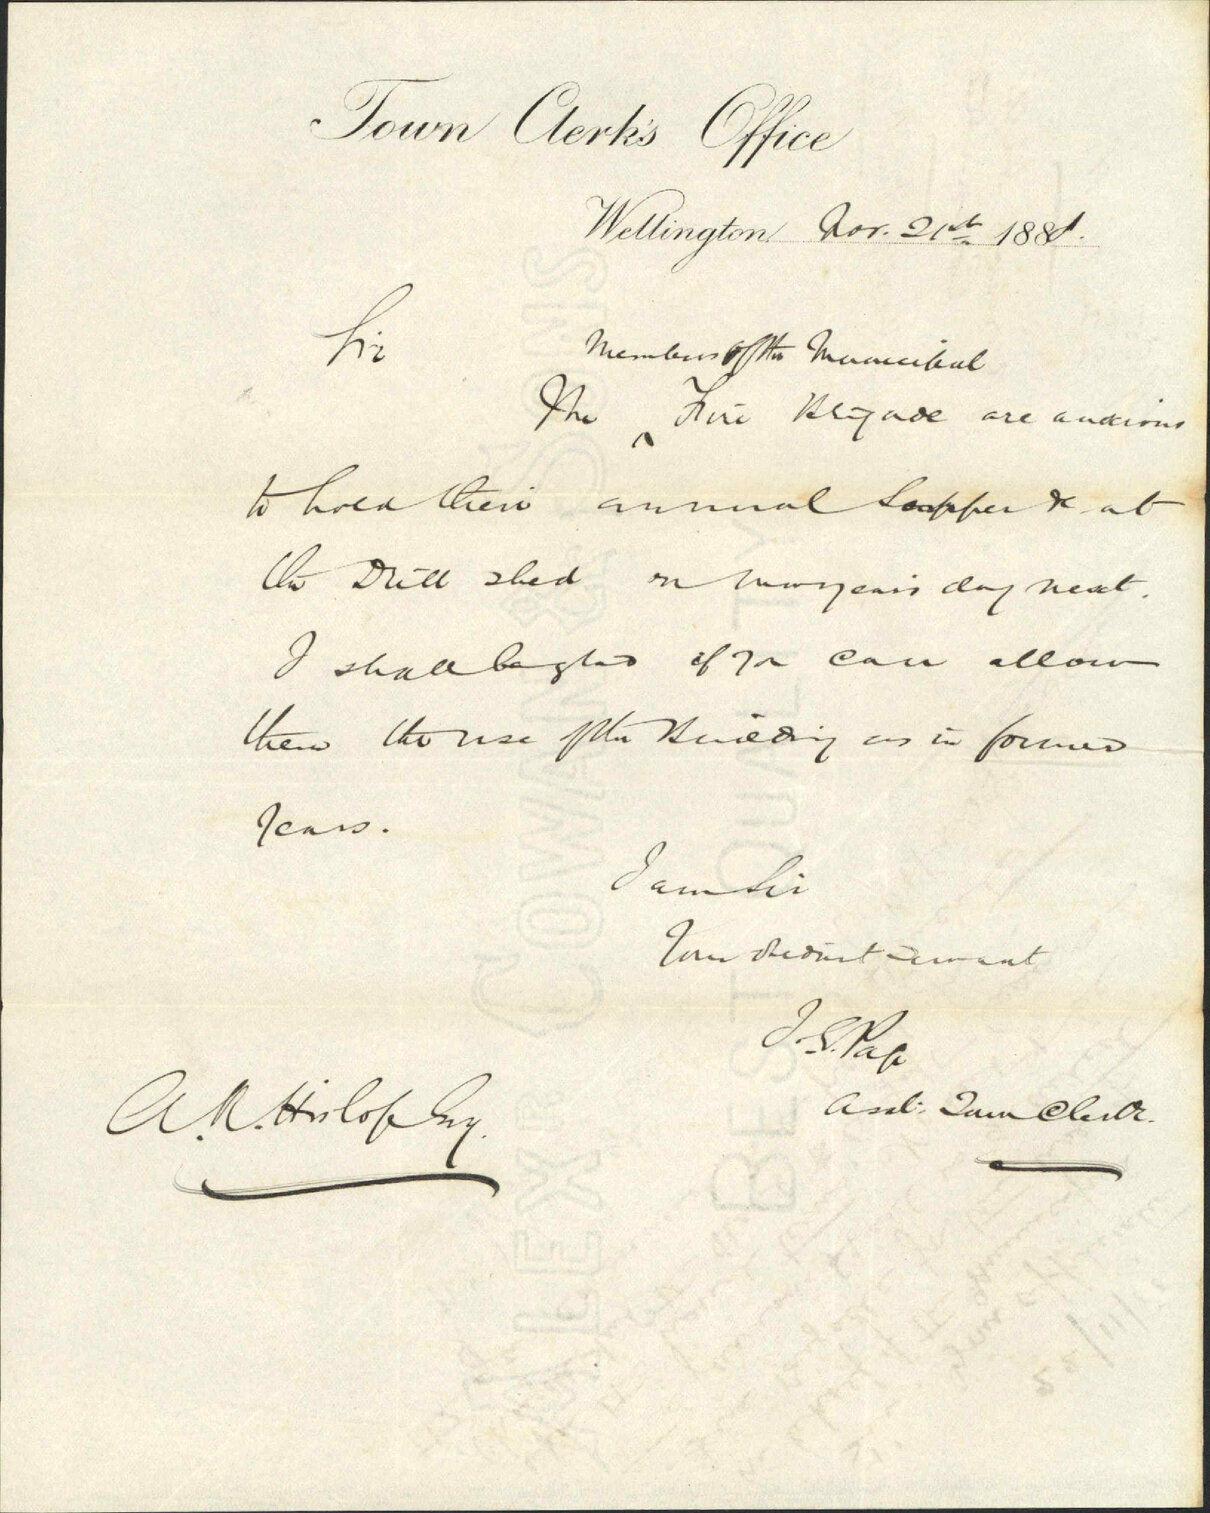 Town Clerk's Office
Wellington Nov. 21st 1881.
Sir
Members of the Municipal
The ^ Fire Brigade are anxious
to hold their annual Supper &c at
the Drill shed on New years day next.
I shall be glad if you can allow
them the use of the Building as in former
years.
I am Sir
Your obedient servant
J. S. Page
Asst. Town Clerk.
A. R. Hislop Esq.
ALEX COWAN & SONS
BEST QUALITY